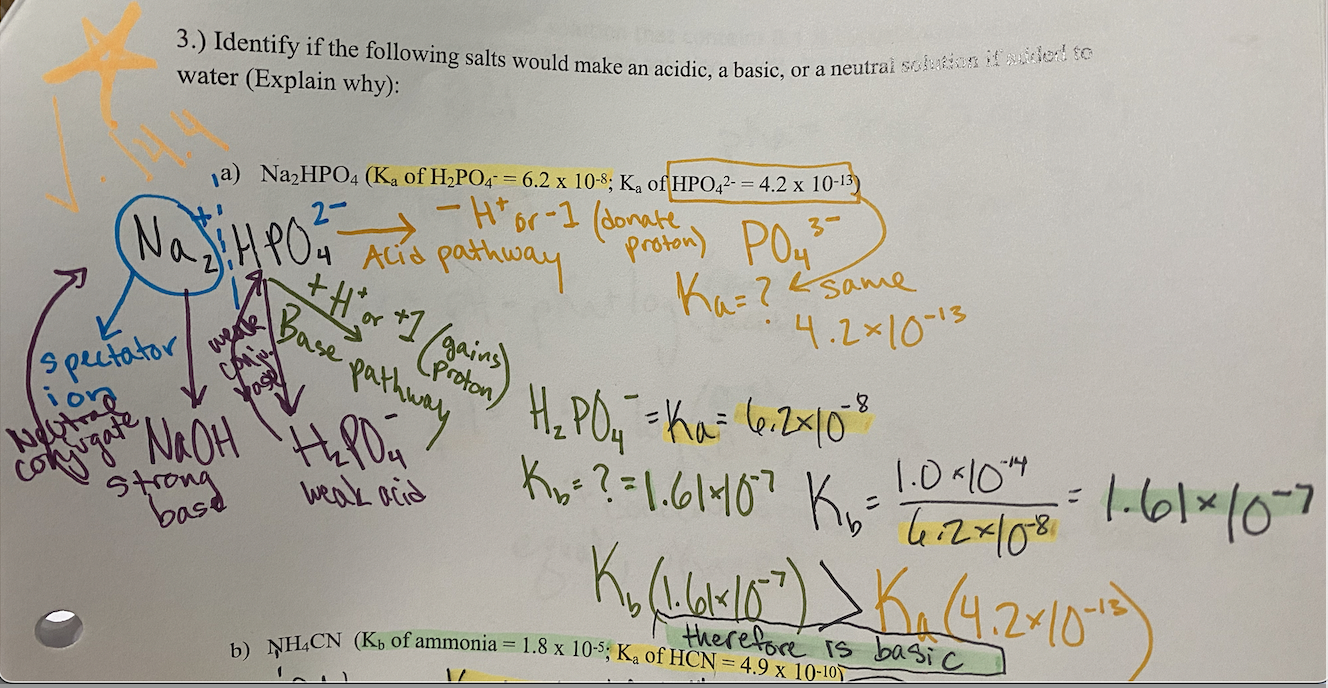 3.) Identify if the following salts would make an acidic, a basic, or a neutral solution if added to
water (Explain why):
14.4
a) Na₂HPO₄ (Kₐ of H₂PO₄⁻ = 6.2 x 10⁻⁸; Kₐ of HPO₄²⁻ = 4.2 x 10⁻¹³)
Na₂⁺ HPO₄²⁻ → - H⁺ or -1 (donate proton) PO₄³⁻
Acid pathway
Ka = ? ← same
4.2×10⁻¹³
+ H⁺ or +1 (gains proton)
Base pathway
spectator
ion
weak
conj.
base
Neutral
conjugate
NaOH
strong
base
H₂PO₄⁻
weak acid
H₂PO₄⁻ = Ka = 6.2×10⁻⁸
K_b = ? = 1.61×10⁻⁷
K_b = 1.0×10⁻¹⁴ / 6.2×10⁻⁸ = 1.61×10⁻⁷
K_b (1.61×10⁻⁷) > Ka (4.2×10⁻¹³)
therefore is basic
b) NH₄CN (K_b of ammonia = 1.8 x 10⁻⁵; Kₐ of HCN = 4.9 x 10⁻¹⁰)